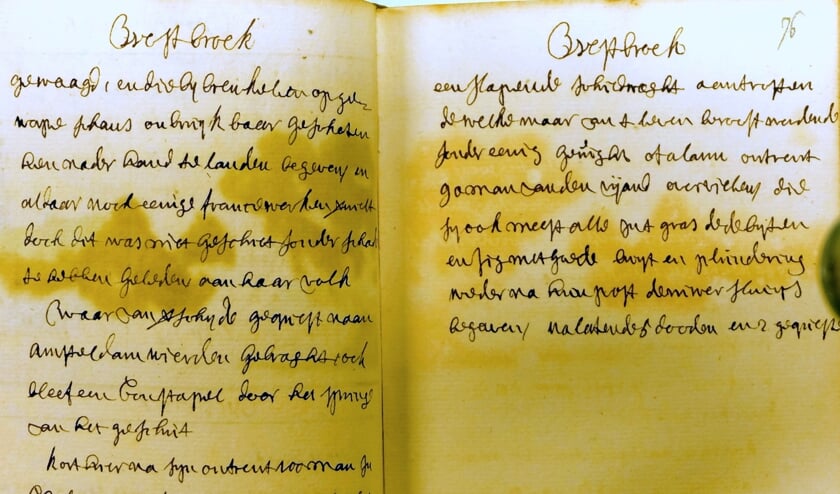 Breststroek
gewaagd, en die by breukelen op ge=
wape schans onbruyk baar geschoten
hen nader hand te landen begeven en
aldaar noch eenige francse werken
doch dit was niet geschiet sonder schaa
te hebben geleden aan haar volk
waar van de gequest naan
amsteldam wierden gebraght, ook
bleef een Constapel door het springe
van het geschut
kort hier na syn ontrent 100 man in
Brestbroek
76
een slapende schildwaght aantroffen
dewelke maar van t leven berooft werdende
sonder eenig gerught of alarm ontrent
90 man van den vyand overvielen die
sy ook meest alle int gras dede byten
en sig met goede buyt en plundering
weder na hun post de niwersluys
begeven nalatende 5 dooden en 2 gequest